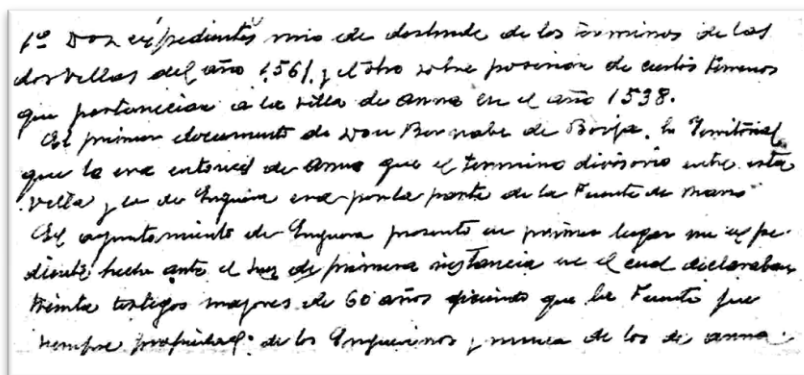 1º Dos expedientes uno de deslinde de los terminos de las
dos villas del año 1561, y el otro sobre posesion de ciertos terrenos
que pertenecian a la villa de Anna en el año 1538.
El primer documento de Don Bernabe de Borja, la Territorial
que lo era entonces de Anna que el termino divisorio entre esta
villa y la de Enguera era por la parte de la Fuente de Marzo
El ayuntamiento de Enguera presentó en primer lugar un espe-
diente hecho ante el Juez de primera instancia en el cual declaraban
treinta testigos mayores de 60 años diciendo que la Fuente fue
siempre propiedad de los Enguerinos y nunca de los de Anna.